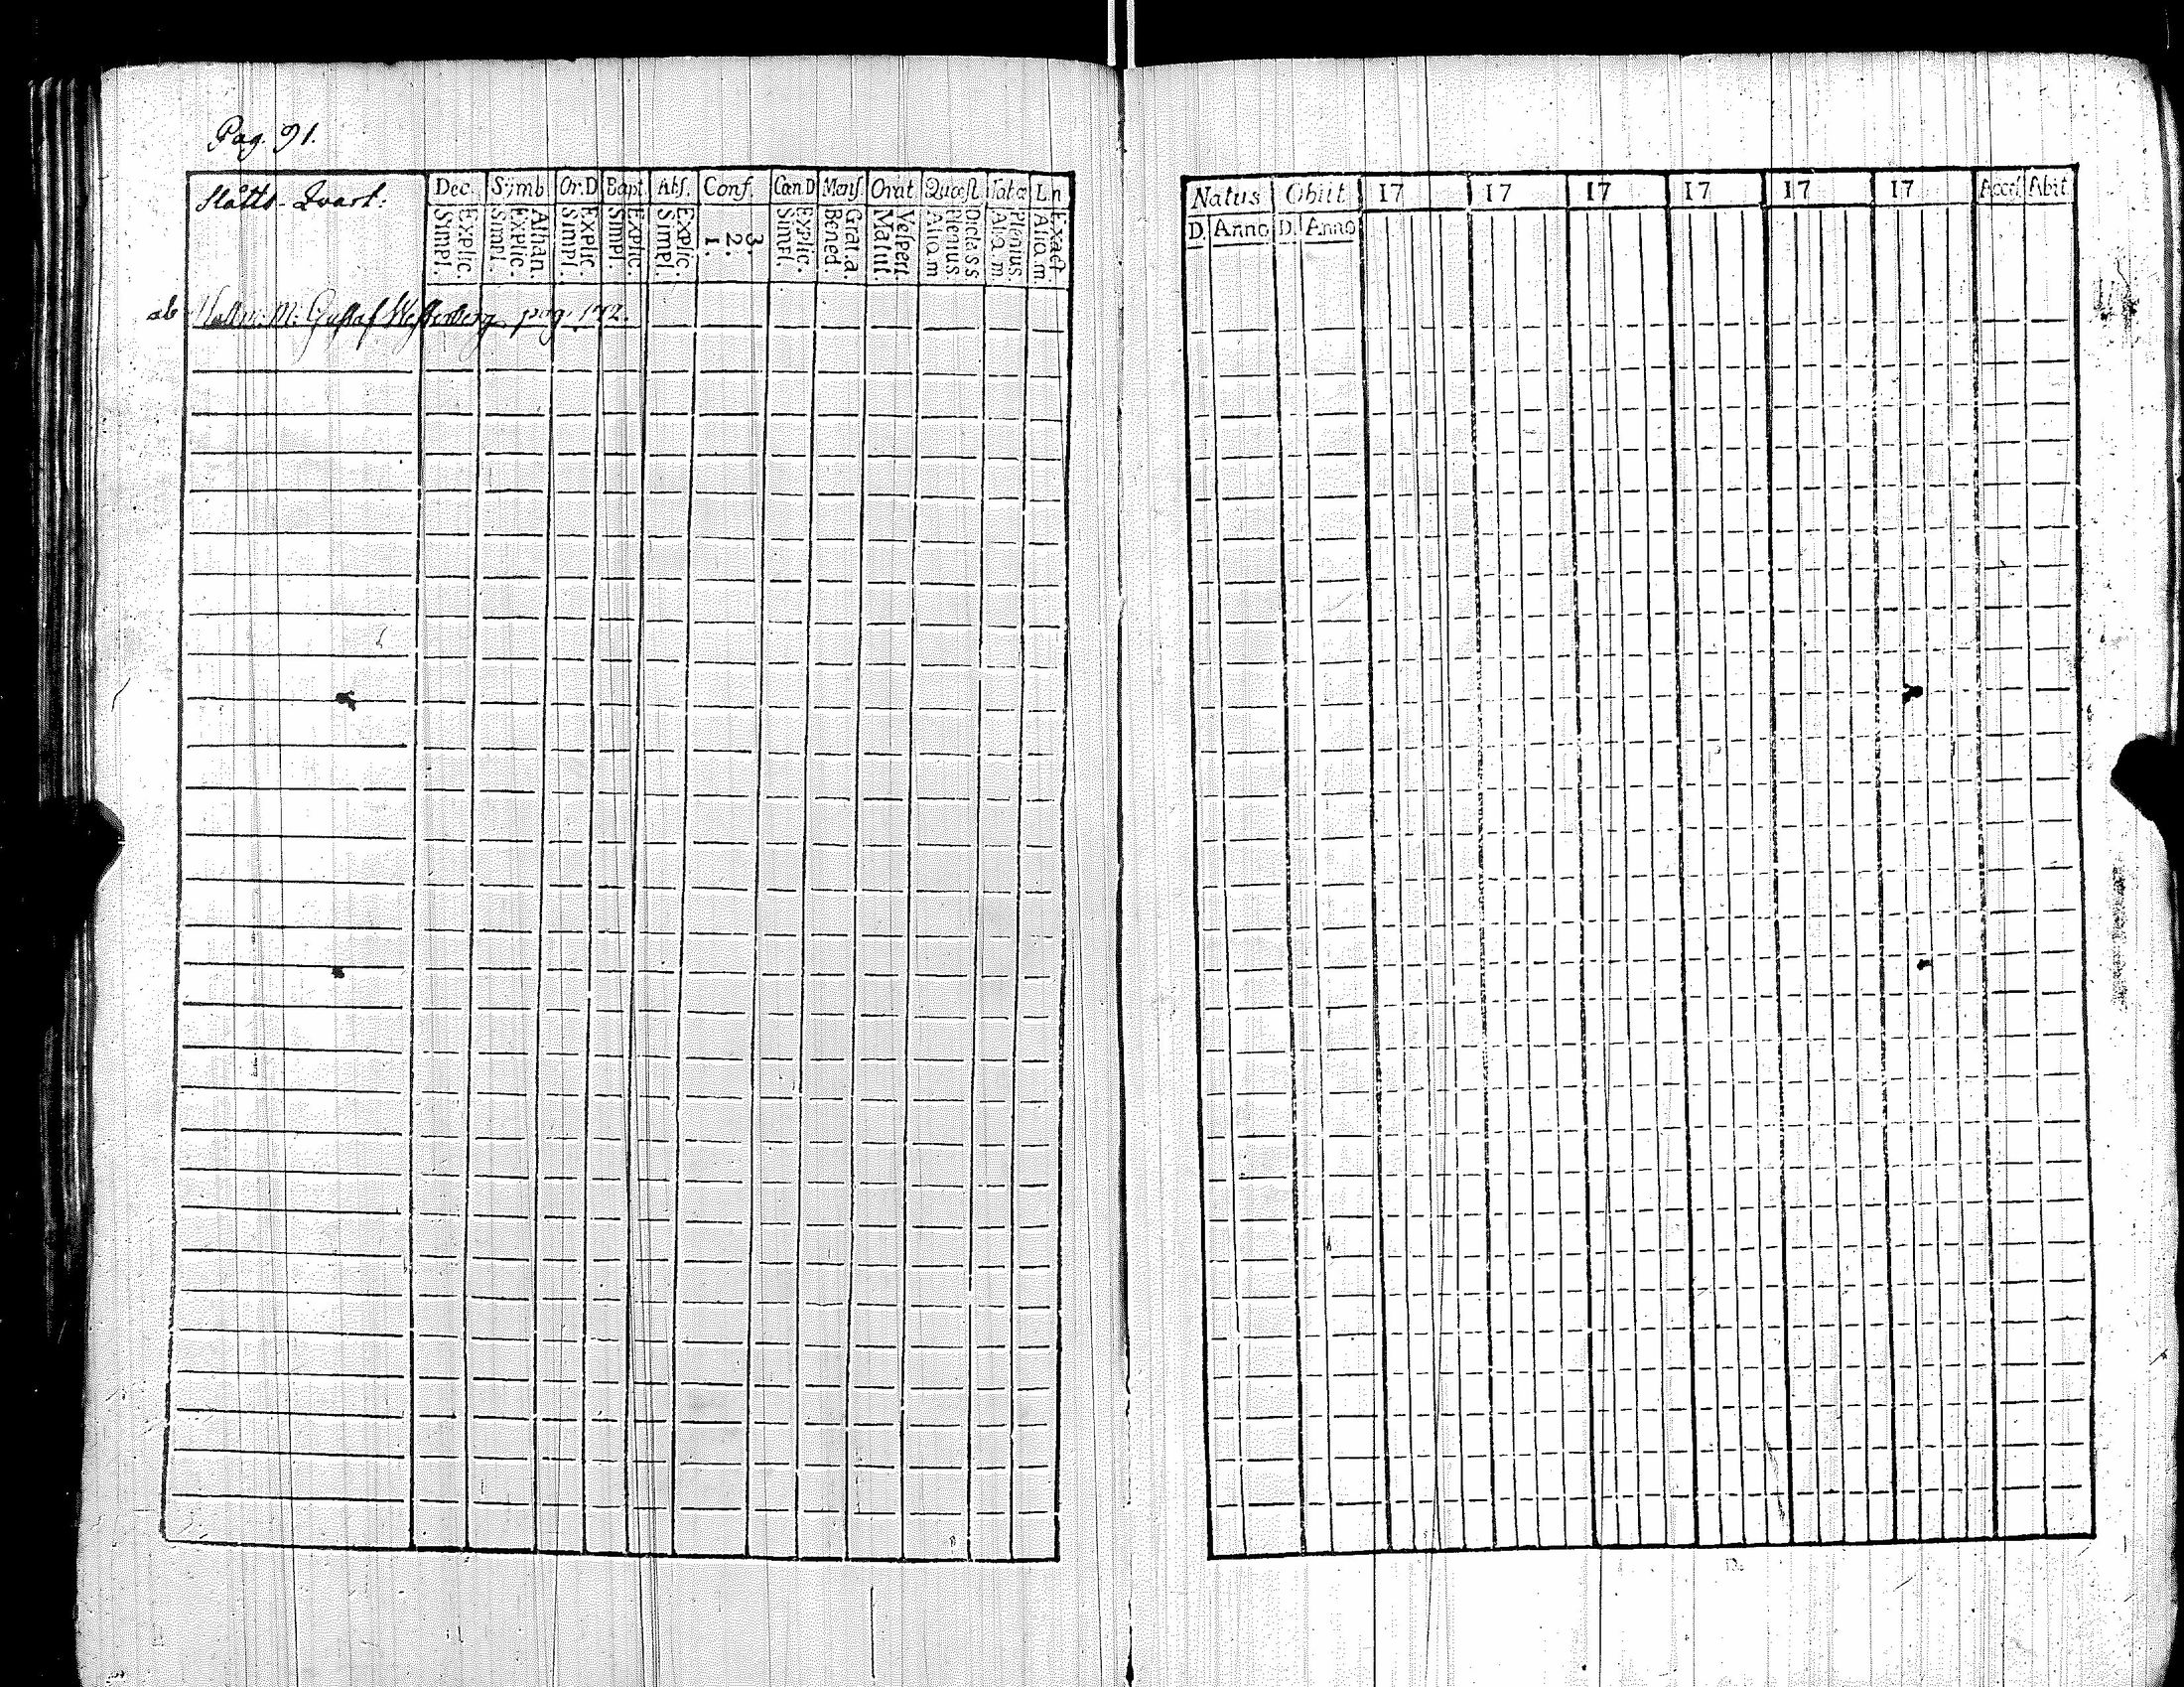 Pag. 91.
Slåtts-Qvart:
Dec. Symb Or.D Bapt. Abs. Conf. Can D Mens Orat Quæst Tabæ Ln
Simpl. Explic. Simpl. Explic. Athan. Simpl. Explic. Simpl. Explic. Simpl. Explic. 1. 2. 3. Simpl. Explic. Bened. Grat.a. Matut. Vespert. Aliq.m Plenius. Dicta s s Aliq.m. Plenius. Aliq.m. Exact
ab M. Gustaf Westerberg pag. 172.
Natus Obiit 17 17 17 17 17 17 Acces Abit
D. Anno D. Anno